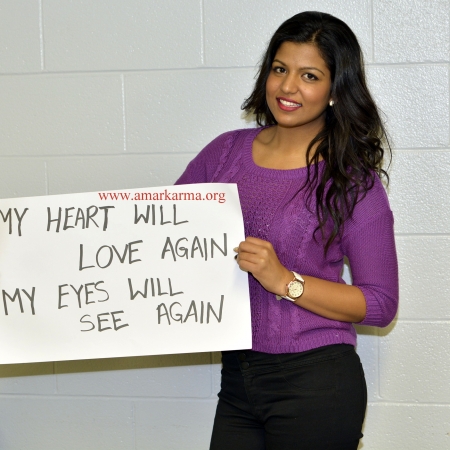 www.amarkarma.org
MY HEART WILL
LOVE AGAIN
MY EYES WILL
SEE AGAIN